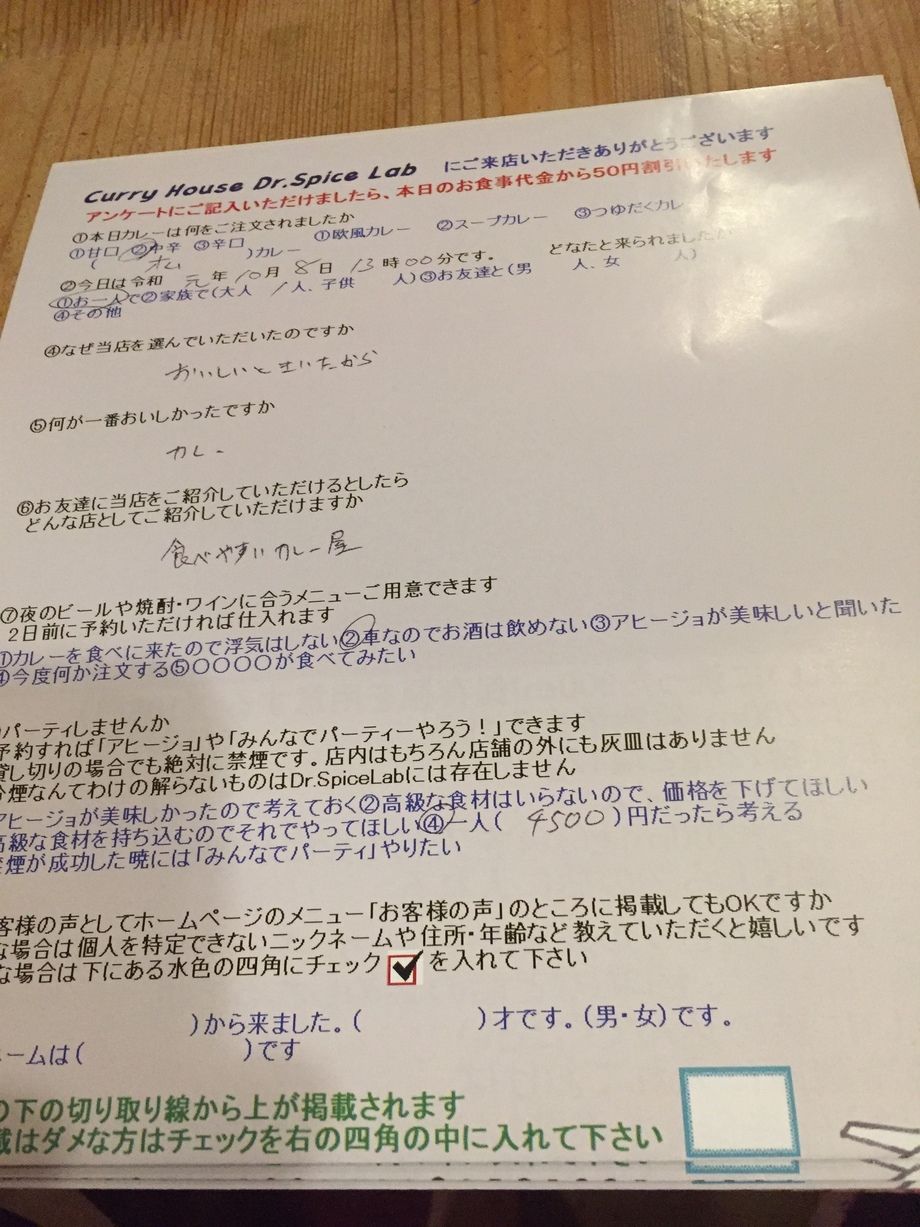 Curry House Dr.Spice Lab にご来店いただきありがとうございます
アンケートにご記入いただけましたら、本日のお食事代金から50円割引いたします
①本日カレーは何をご注文されましたか
①甘口 ②中辛 ③辛口 ①欧風カレー ②スープカレー ③つゆだくカレ
( )カレー
②今日は令和 元 年 10 月 8 日 13 時 00 分です。 どなたと来られましたか
①お一人で②家族で(大人 1 人、子供 人)③お友達と(男 人、女 人)
④その他
④なぜ当店を選んでいただいたのですか
おいしいときいたから
⑤何が一番おいしかったですか
カレー
⑥お友達に当店をご紹介していただけるとしたら
どんな店としてご紹介していただけますか
食べやすいカレー屋
⑦夜のビールや焼酎・ワインに合うメニューご用意できます
2日前に予約いただければ仕入れます
①カレーを食べに来たので浮気はしない②車なのでお酒は飲めない③アヒージョが美味しいと聞いた
④今度何か注文する⑤〇〇〇〇が食べてみたい
パーティしませんか
予約すれば「アヒージョ」や「みんなでパーティーやろう!」できます
貸し切りの場合でも絶対に禁煙です。店内はもちろん店舗の外にも灰皿はありません
煙なんてわけの解らないものはDr.SpiceLabには存在しません
アヒージョが美味しかったので考えておく②高級な食材はいらないので、価格を下げてほしい
高級な食材を持ち込むのでそれでやってほしい④一人( 4500 )円だったら考える
禁煙が成功した暁には「みんなでパーティ」やりたい
客様の声としてホームページのメニュー「お客様の声」のところに掲載してもOKですか
な場合は個人を特定できないニックネームや住所・年齢など教えていただくと嬉しいです
な場合は下にある水色の四角にチェック を入れて下さい
)から来ました。( )才です。(男・女)です。
ームは( )です
の下の切り取り線から上が掲載されます
載はダメな方はチェックを右の四角の中に入れて下さい